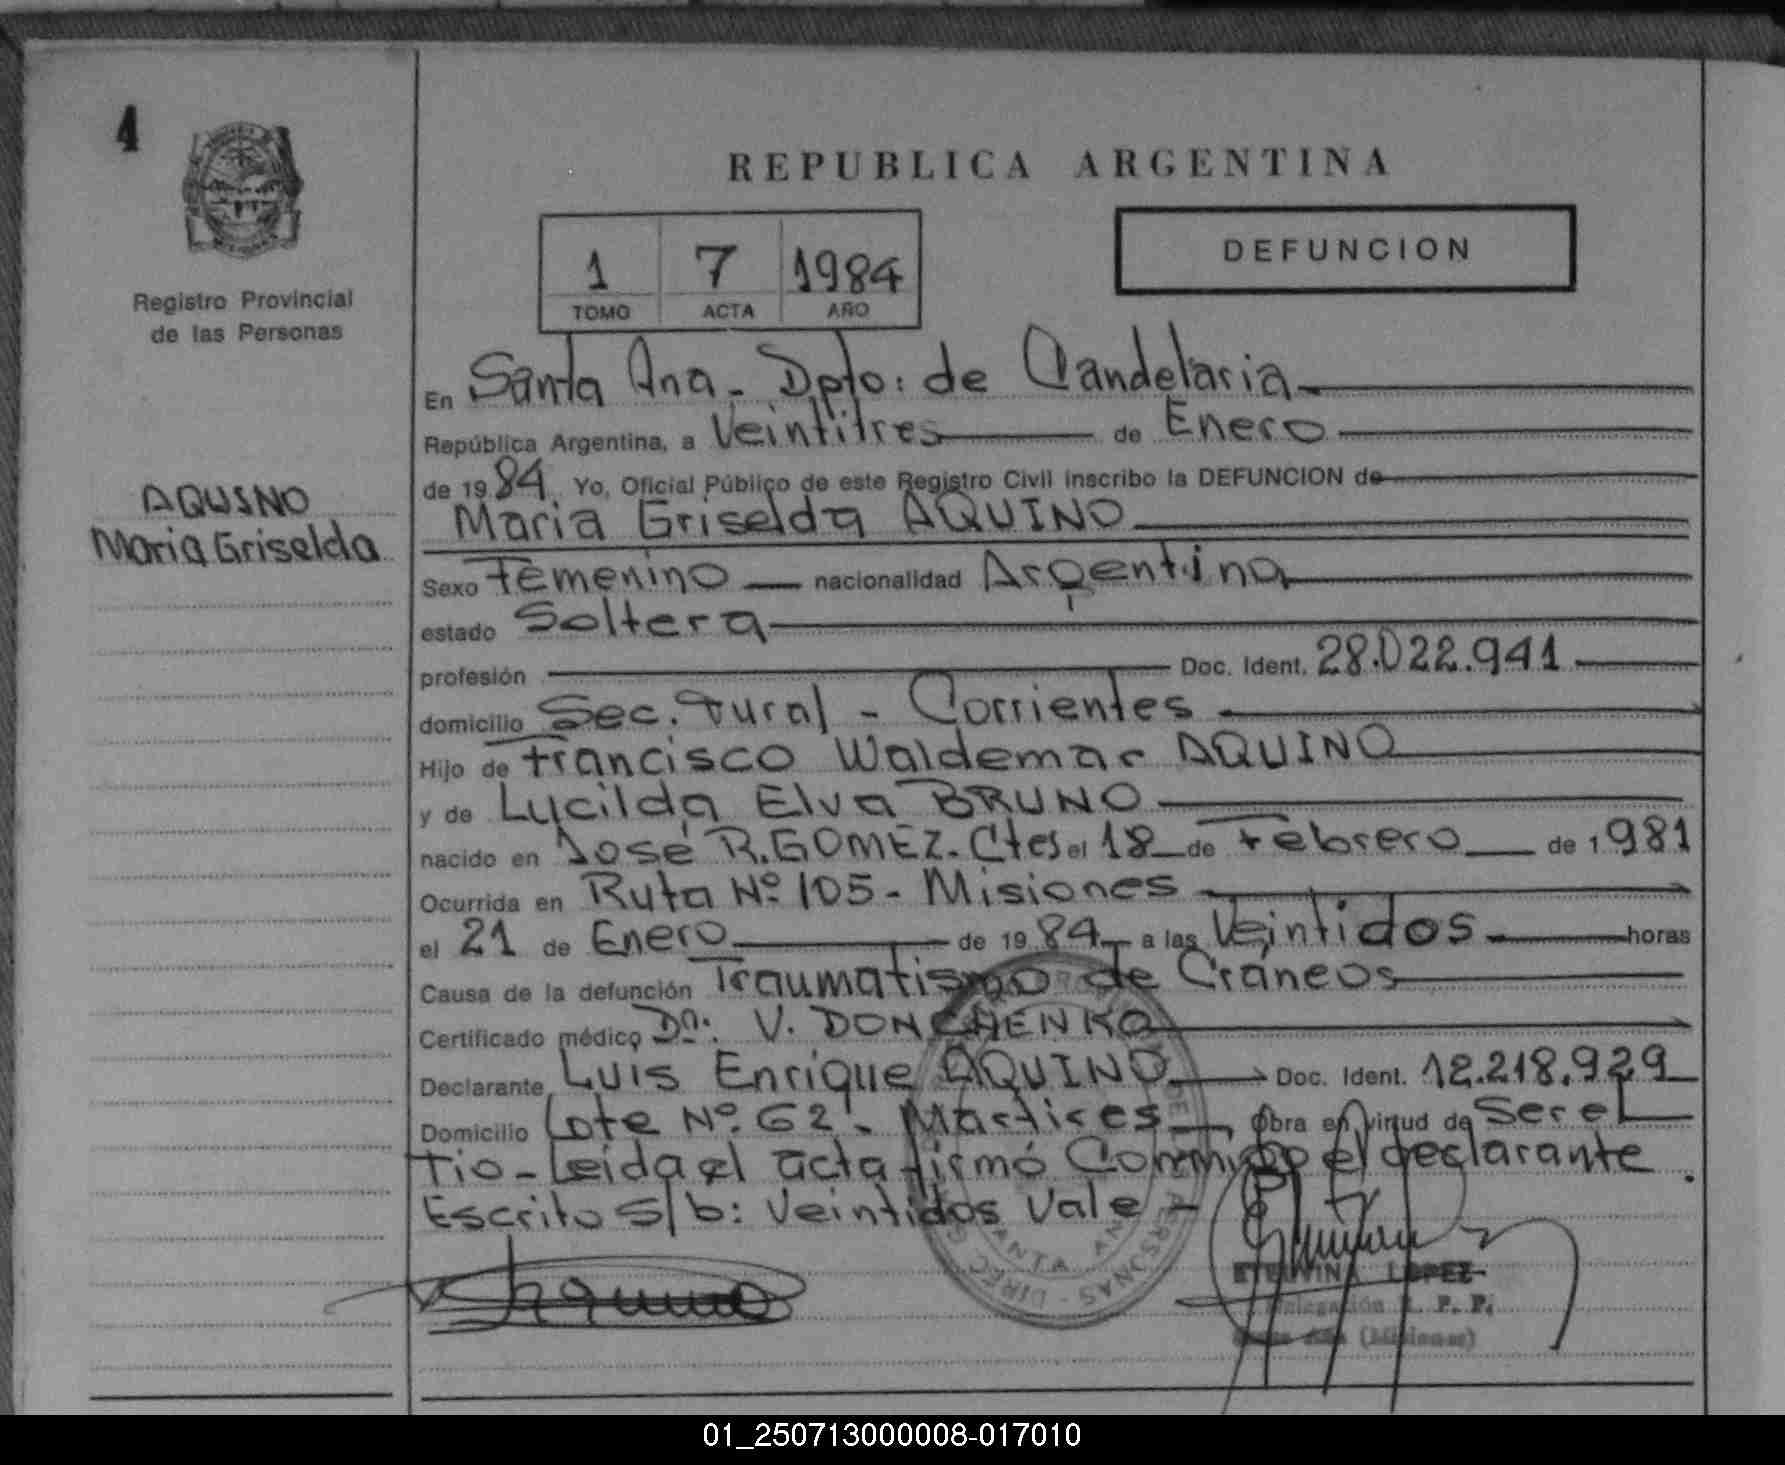 4
REPUBLICA ARGENTINA
1 7 1984
TOMO ACTA AÑO
DEFUNCION
Registro Provincial
de las Personas
AQUINO
Maria Griselda
En Santa Ana - Dpto: de Candelaria
República Argentina, a Veintitres de Enero
de 1984 Yo, Oficial Público de este Registro Civil inscribo la DEFUNCION de
Maria Griselda AQUINO
Sexo Femenino nacionalidad Argentina
estado Soltera
profesión Doc. Ident. 28.022.941
domicilio Sec. rural - Corrientes
Hijo de Francisco Waldemar AQUINO
y de Lucilda Elva BRUNO
nacido en José R. GOMEZ. Ctes el 18 de Febrero de 1981
Ocurrida en Ruta Nº 105 - Misiones
el 21 de Enero de 1984 a las Veintidos horas
Causa de la defunción Traumatismo de Cráneos
Certificado médico V. DONCHENKO
Declarante Luis Enrique AQUINO Doc. Ident. 12.218.929
Domicilio Lote Nº 62 - Martires Obra en virtud de Ser el
Tio - Leida el acta firmó Conmigo el declarante.
Escrito s/b: Veintidos Vale -
LOPEZ
Delegación R. P. P.
Santa Ana (Misiones)
01_250713000008-017010